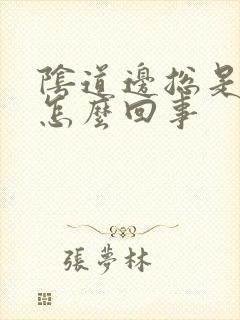 陰道邊摠是
怎麼回事
張夢林